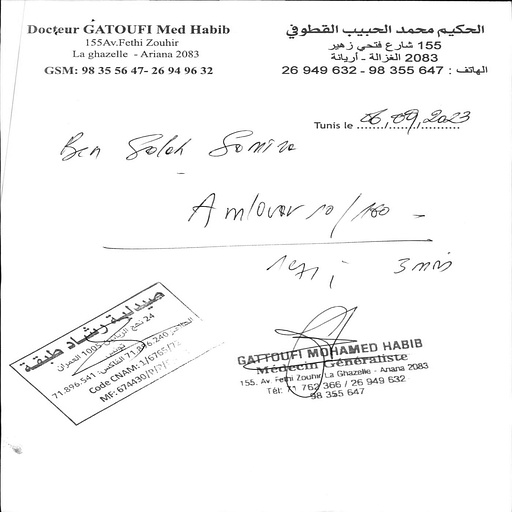 Docteur GATOUFI Med Habib
155Av.Fethi Zouhir
La ghazelle - Ariana 2083
GSM: 98 35 56 47- 26 94 96 32
الحكيم محمد الحبيب القطوفي
155 شارع فتحي زهير
2083 الغزالة - أريانة
الهاتف : 647 355 98 - 632 949 26
Tunis le 06,09,2023
Ben Salah Samira
Amlovar 10/160
3 mois
صيدلية رشاد طبقة
71.896.541 الفاكس: 71.896.240
Code CNAM: 1/6765/
MF: 674430/P/
GATTOUFI MOHAMED HABIB
Médecin Généraliste
155. Av. Fethi Zouhir La Ghazelle - Ariana 2083
Tél: 71 762 366 / 26 949 632
98 355 647